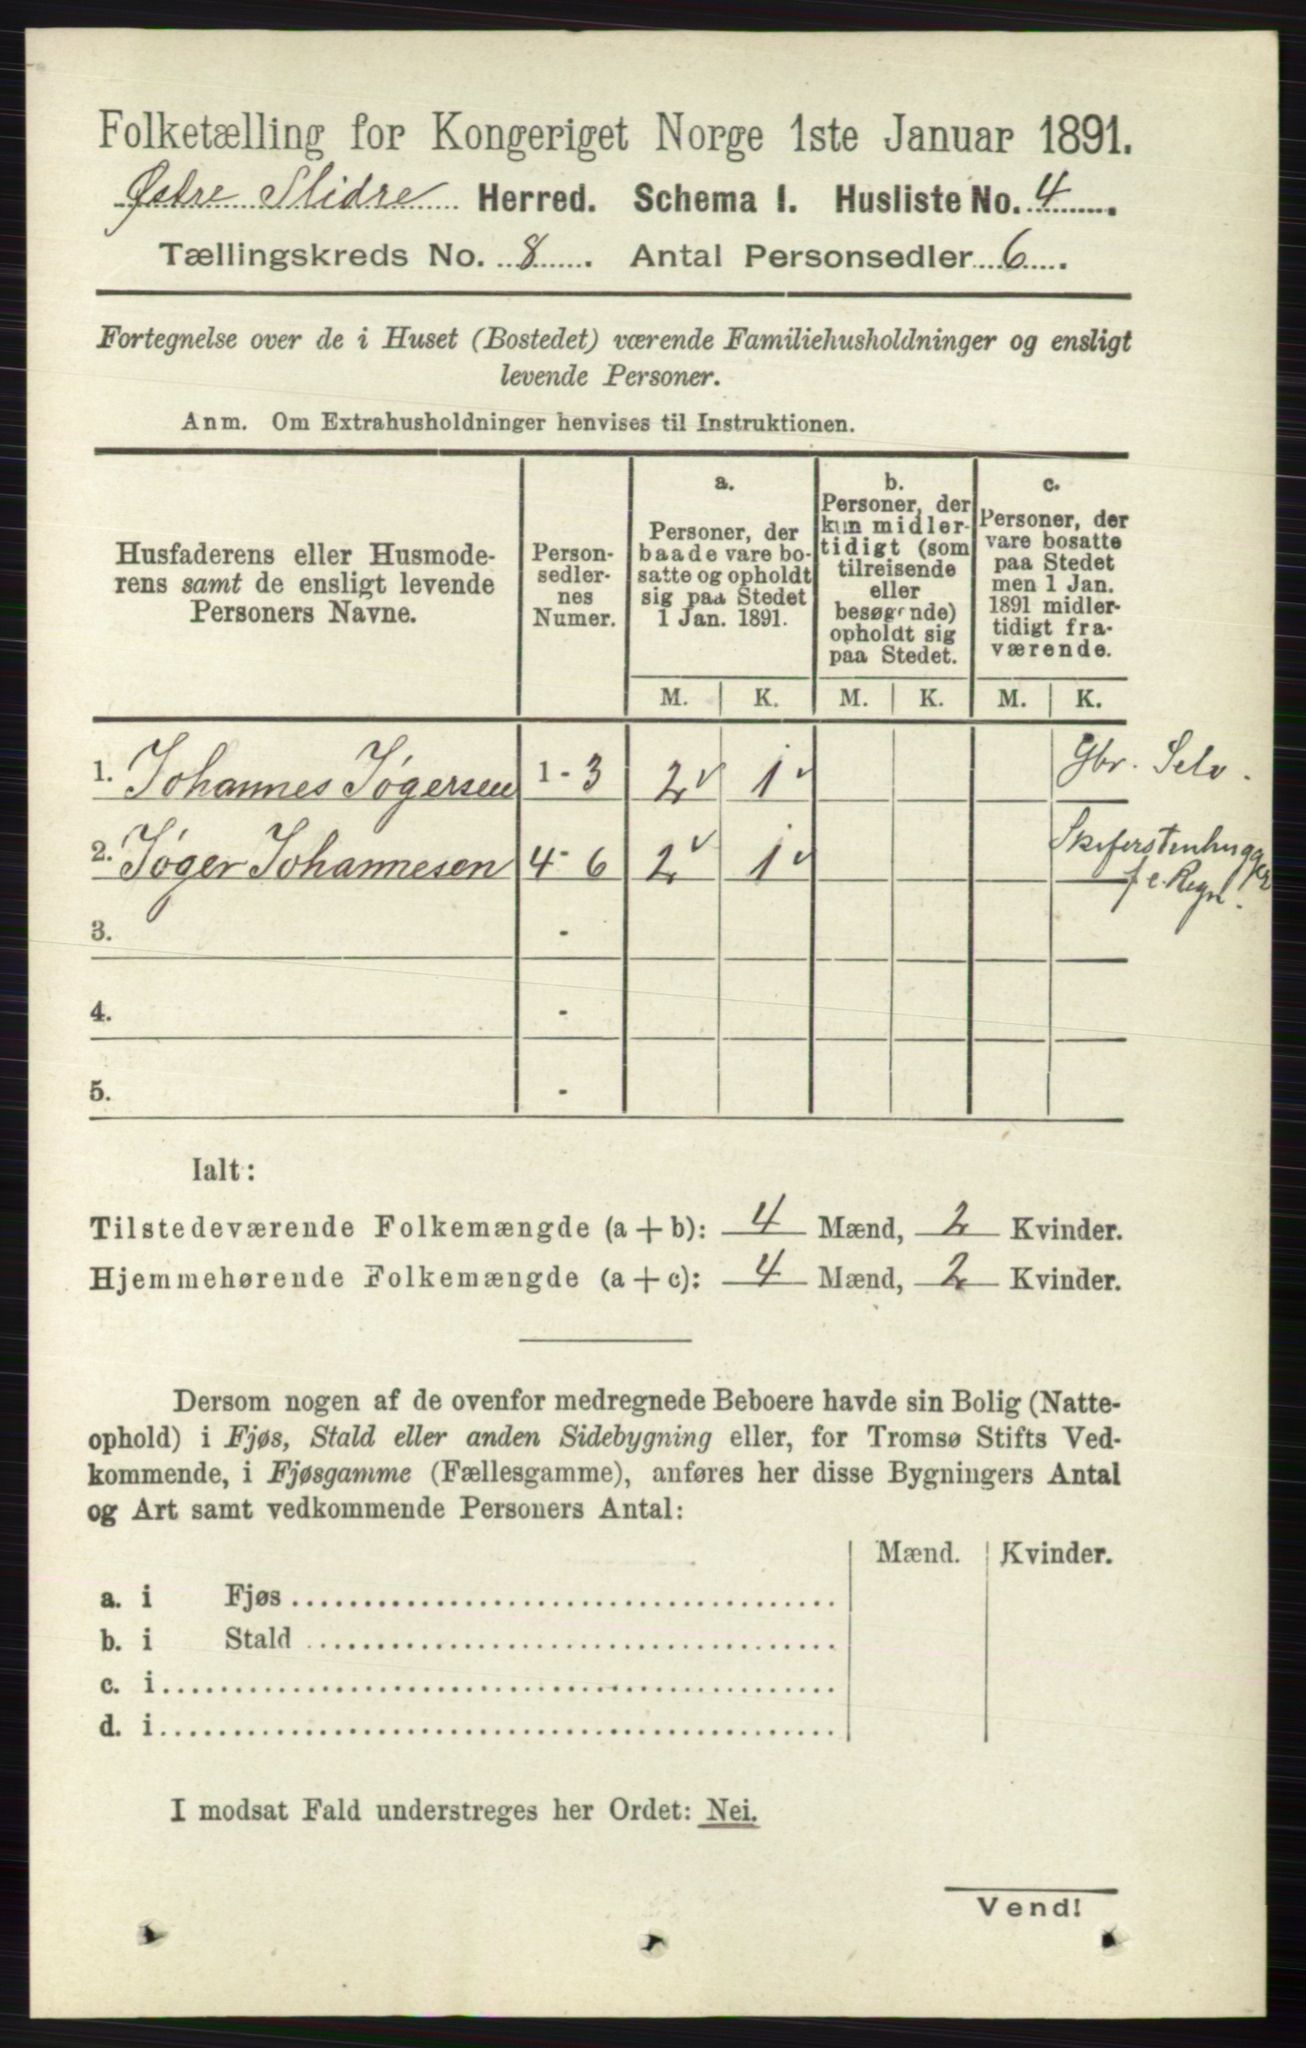 Folketælling for Kongeriget Norge 1ste Januar 1891.
Østre Slidre Herred. Schema 1. Husliste No. 4
Tællingskreds No. 8. Antal Personsedler 6.
Fortegnelse over de i Huset (Bostedet) værende Familiehusholdninger og ensligt
levende Personer.
Anm. Om Extrahusholdninger henvises til Instruktionen.
Husfaderens eller Husmode-
rens samt de ensligt levende
Personers Navne.
Person-
sedler-
nes
Numer.
a.
Personer, der
baade vare bo-
satte og opholdt
sig paa Stedet
1 Jan. 1891.
b.
Personer, der
kun midler-
tidigt (som
tilreisende
eller
besøgende)
opholdt sig
paa Stedet.
c.
Personer, der
vare bosatte
paa Stedet
men 1 Jan.
1891 midler-
tidigt fra-
værende.
M. K. M. K. M. K.
1. Johannes Jøgersen 1 - 3 2 1 Gbr. Selv.
2. Jøger Johannesen 4 - 6 2 1 Skiferstenhugger
f. e. Regn.
3. -
4. -
5. -
Ialt:
Tilstedeværende Folkemængde (a + b): 4 Mænd, 2 Kvinder.
Hjemmehørende Folkemængde (a + c): 4 Mænd, 2 Kvinder.
Dersom nogen af de ovenfor medregnede Beboere havde sin Bolig (Natte-
ophold) i Fjøs, Stald eller anden Sidebygning eller, for Tromsø Stifts Ved-
kommende, i Fjøsgamme (Fællesgamme), anføres her disse Bygningers Antal
og Art samt vedkommende Personers Antal:
Mænd. Kvinder.
a. i Fjøs
b. i Stald
c. i
d. i
I modsat Fald understreges her Ordet: Nei.
Vend!